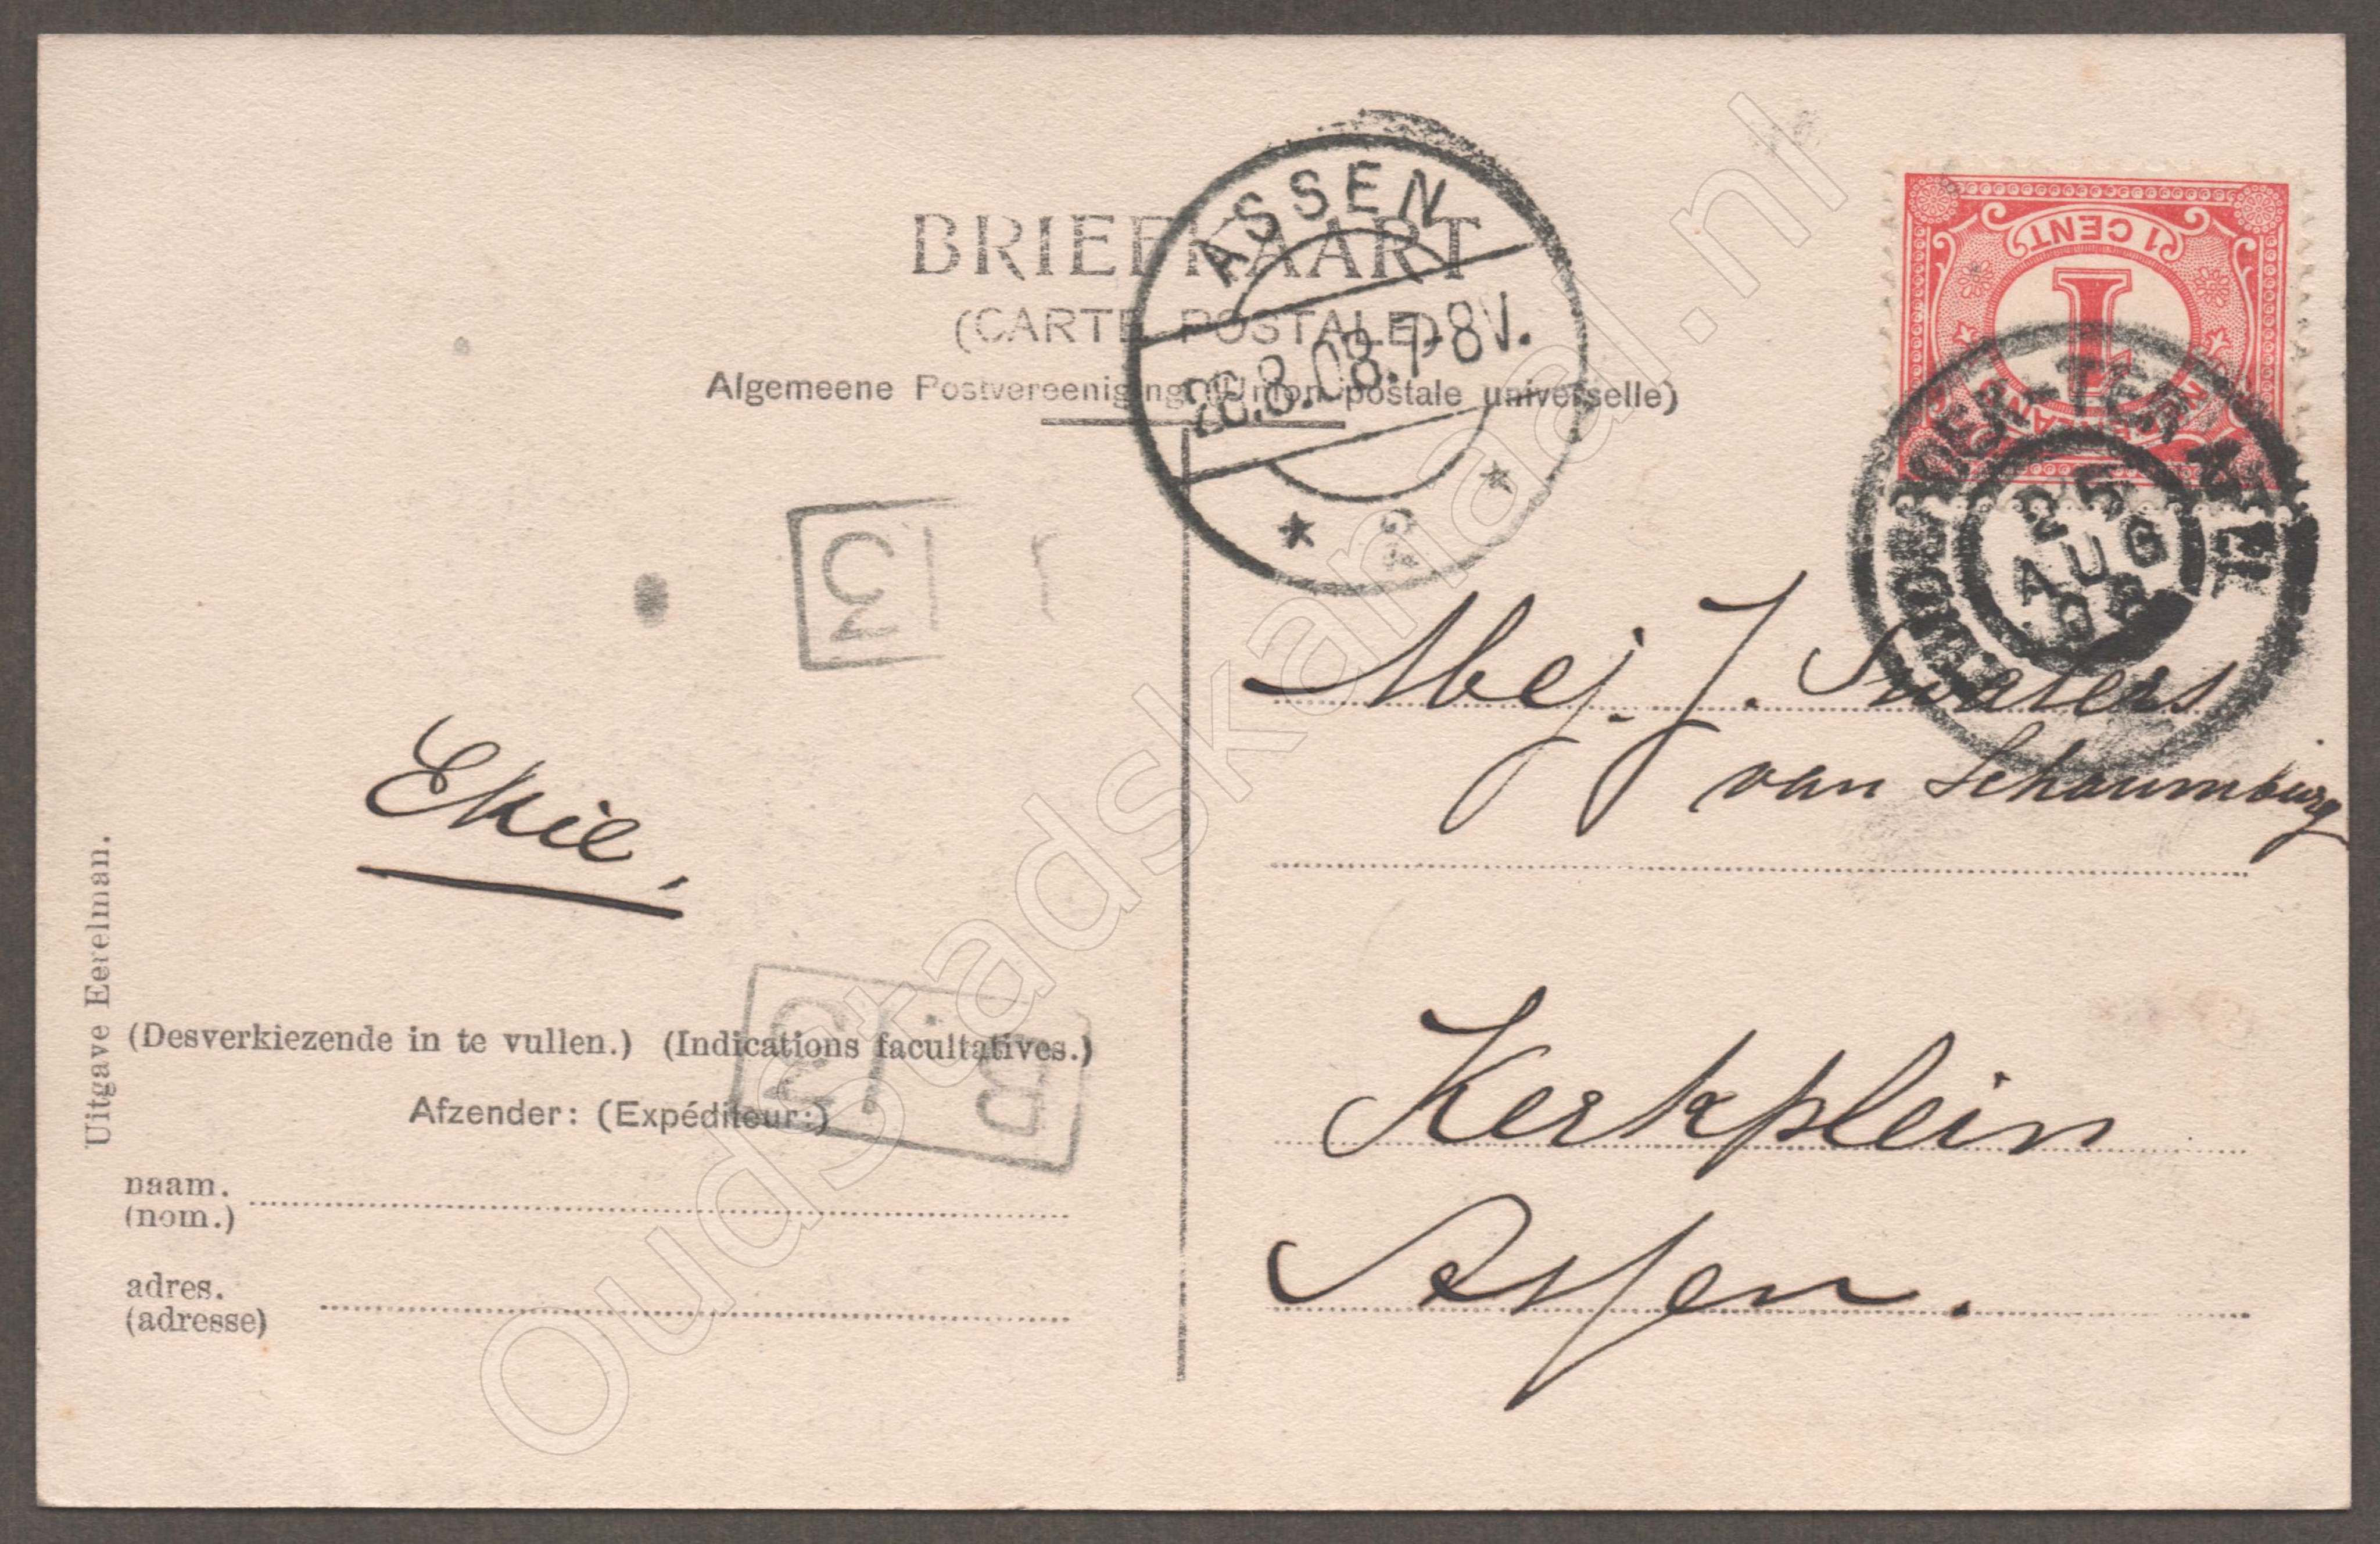 ASSEN
BRIEFKAART
(CARTE POSTALE)
26.8.08.7-8V.
Algemeene Postvereeniging (Union postale universelle)
* 2 *
1 CENT
1
25
AUG
08
3
Mej. J. Suaters
van Schaumburg
Ekie,
Uitgave Eerelman.
Kerkplein
Assen.
(Desverkiezende in te vullen.) (Indications facultatives.)
3 B
Afzender: (Expéditeur:)
naam.
(nom.)
adres.
(adresse)
OudStadskanaal.nl